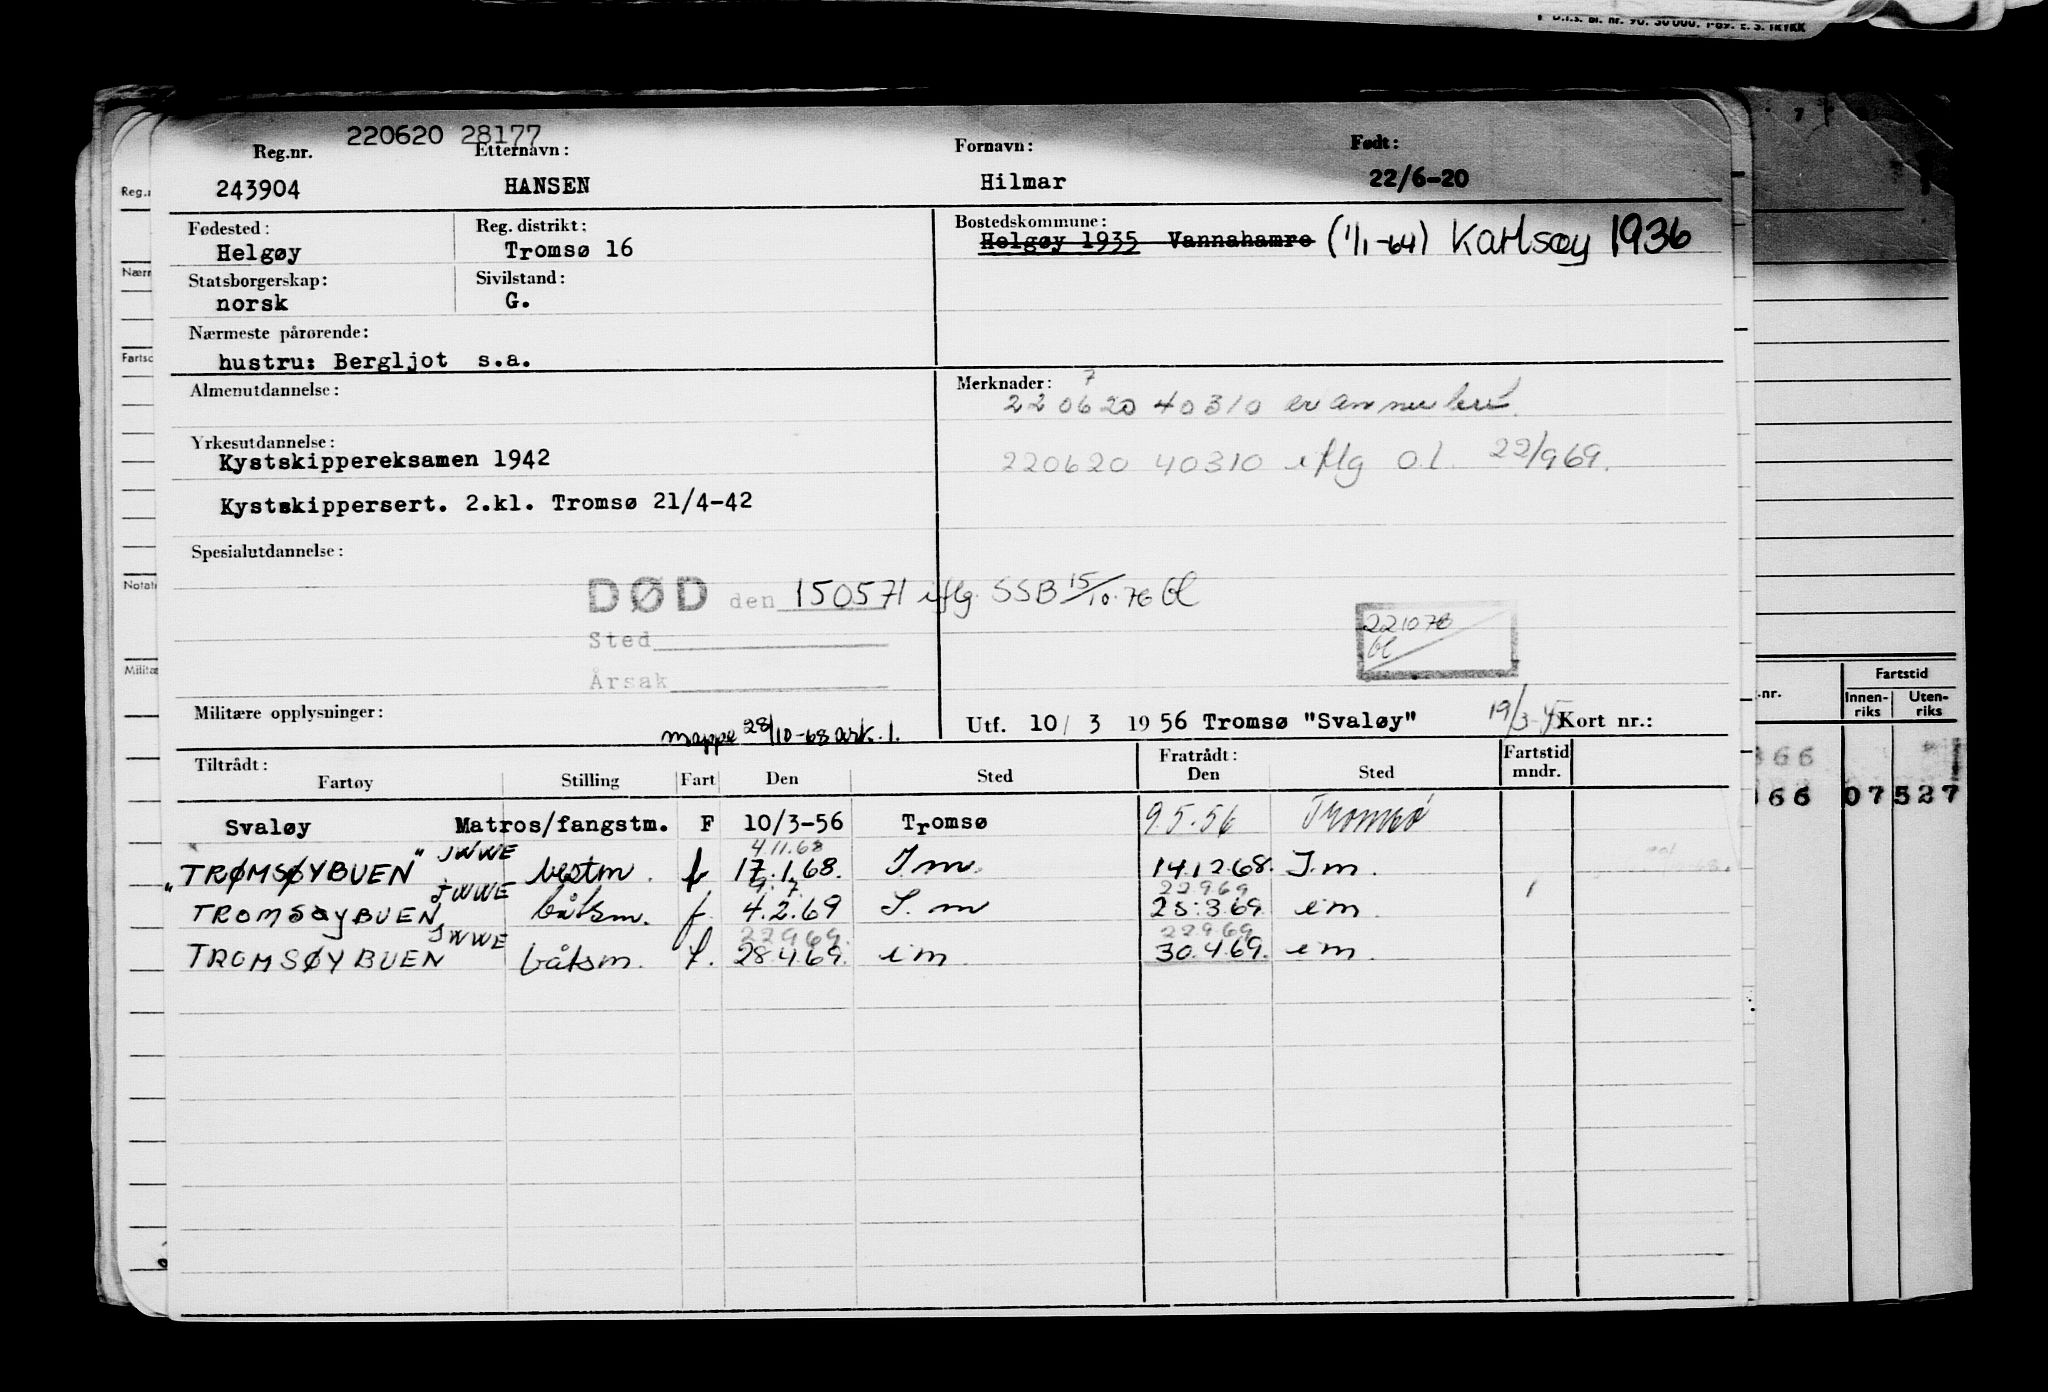 D.I.S. Bl. nr. 90. 30 000. 1-69. E. S. TRYKK
220620 28177
Reg.nr. Etternavn: Fornavn: Født:
243904 HANSEN Hilmar 22/6-20
Fødested: Reg. distrikt: Bostedskommune:
Helgøy Tromsø 16 Helgøy 1935 Vannahamre (1/1-64) Karlsøy 1936
Statsborgerskap: Sivilstand:
norsk G.
Nærmeste pårørende:
hustru: Bergljot s.a.
Almenutdannelse: Merknader: 7
220620 40310 er annullert.
Yrkesutdannelse:
Kystskippereksamen 1942 220620 40310 iflg O.l. 22/9 69.
Kystskippersert. 2.kl. Tromsø 21/4-42
Spesialutdannelse:
DØD den 150571 iflg. SSB 15/10.76 bl
Sted
221076
bl
Årsak
Militære opplysninger: mappe 28/10-68 ark. 1. Utf. 10/ 3 1956 Tromsø "Svaløy" 19/3-45 Kort nr.:
Tiltrådt: Fratrådt: Fartstid
Fartøy Stilling Fart Den Sted Den Sted mndr.
Svaløy Matros/fangstm. F 10/3-56 Tromsø 9.5.56 Tromsø
4.11.68
"TRØMSØYBUEN" JWWE bestm. f 17.1.68. I m. 14.12.68. I.m.
9. 7. 22969
TROMSØYBUEN JWWE båtsm. f. 4.2.69 I. m 25.3.69. i m. 1
22969. 22969
TROMSØYBUEN JWWE båtsm. f. 28.4.69. i m. 30.4.69. i m.
Reg.n
Nærm
Fartsc
Notate
Militæ
7
.nr. Fartstid
Innen-riks Uten-riks
366
166 07527